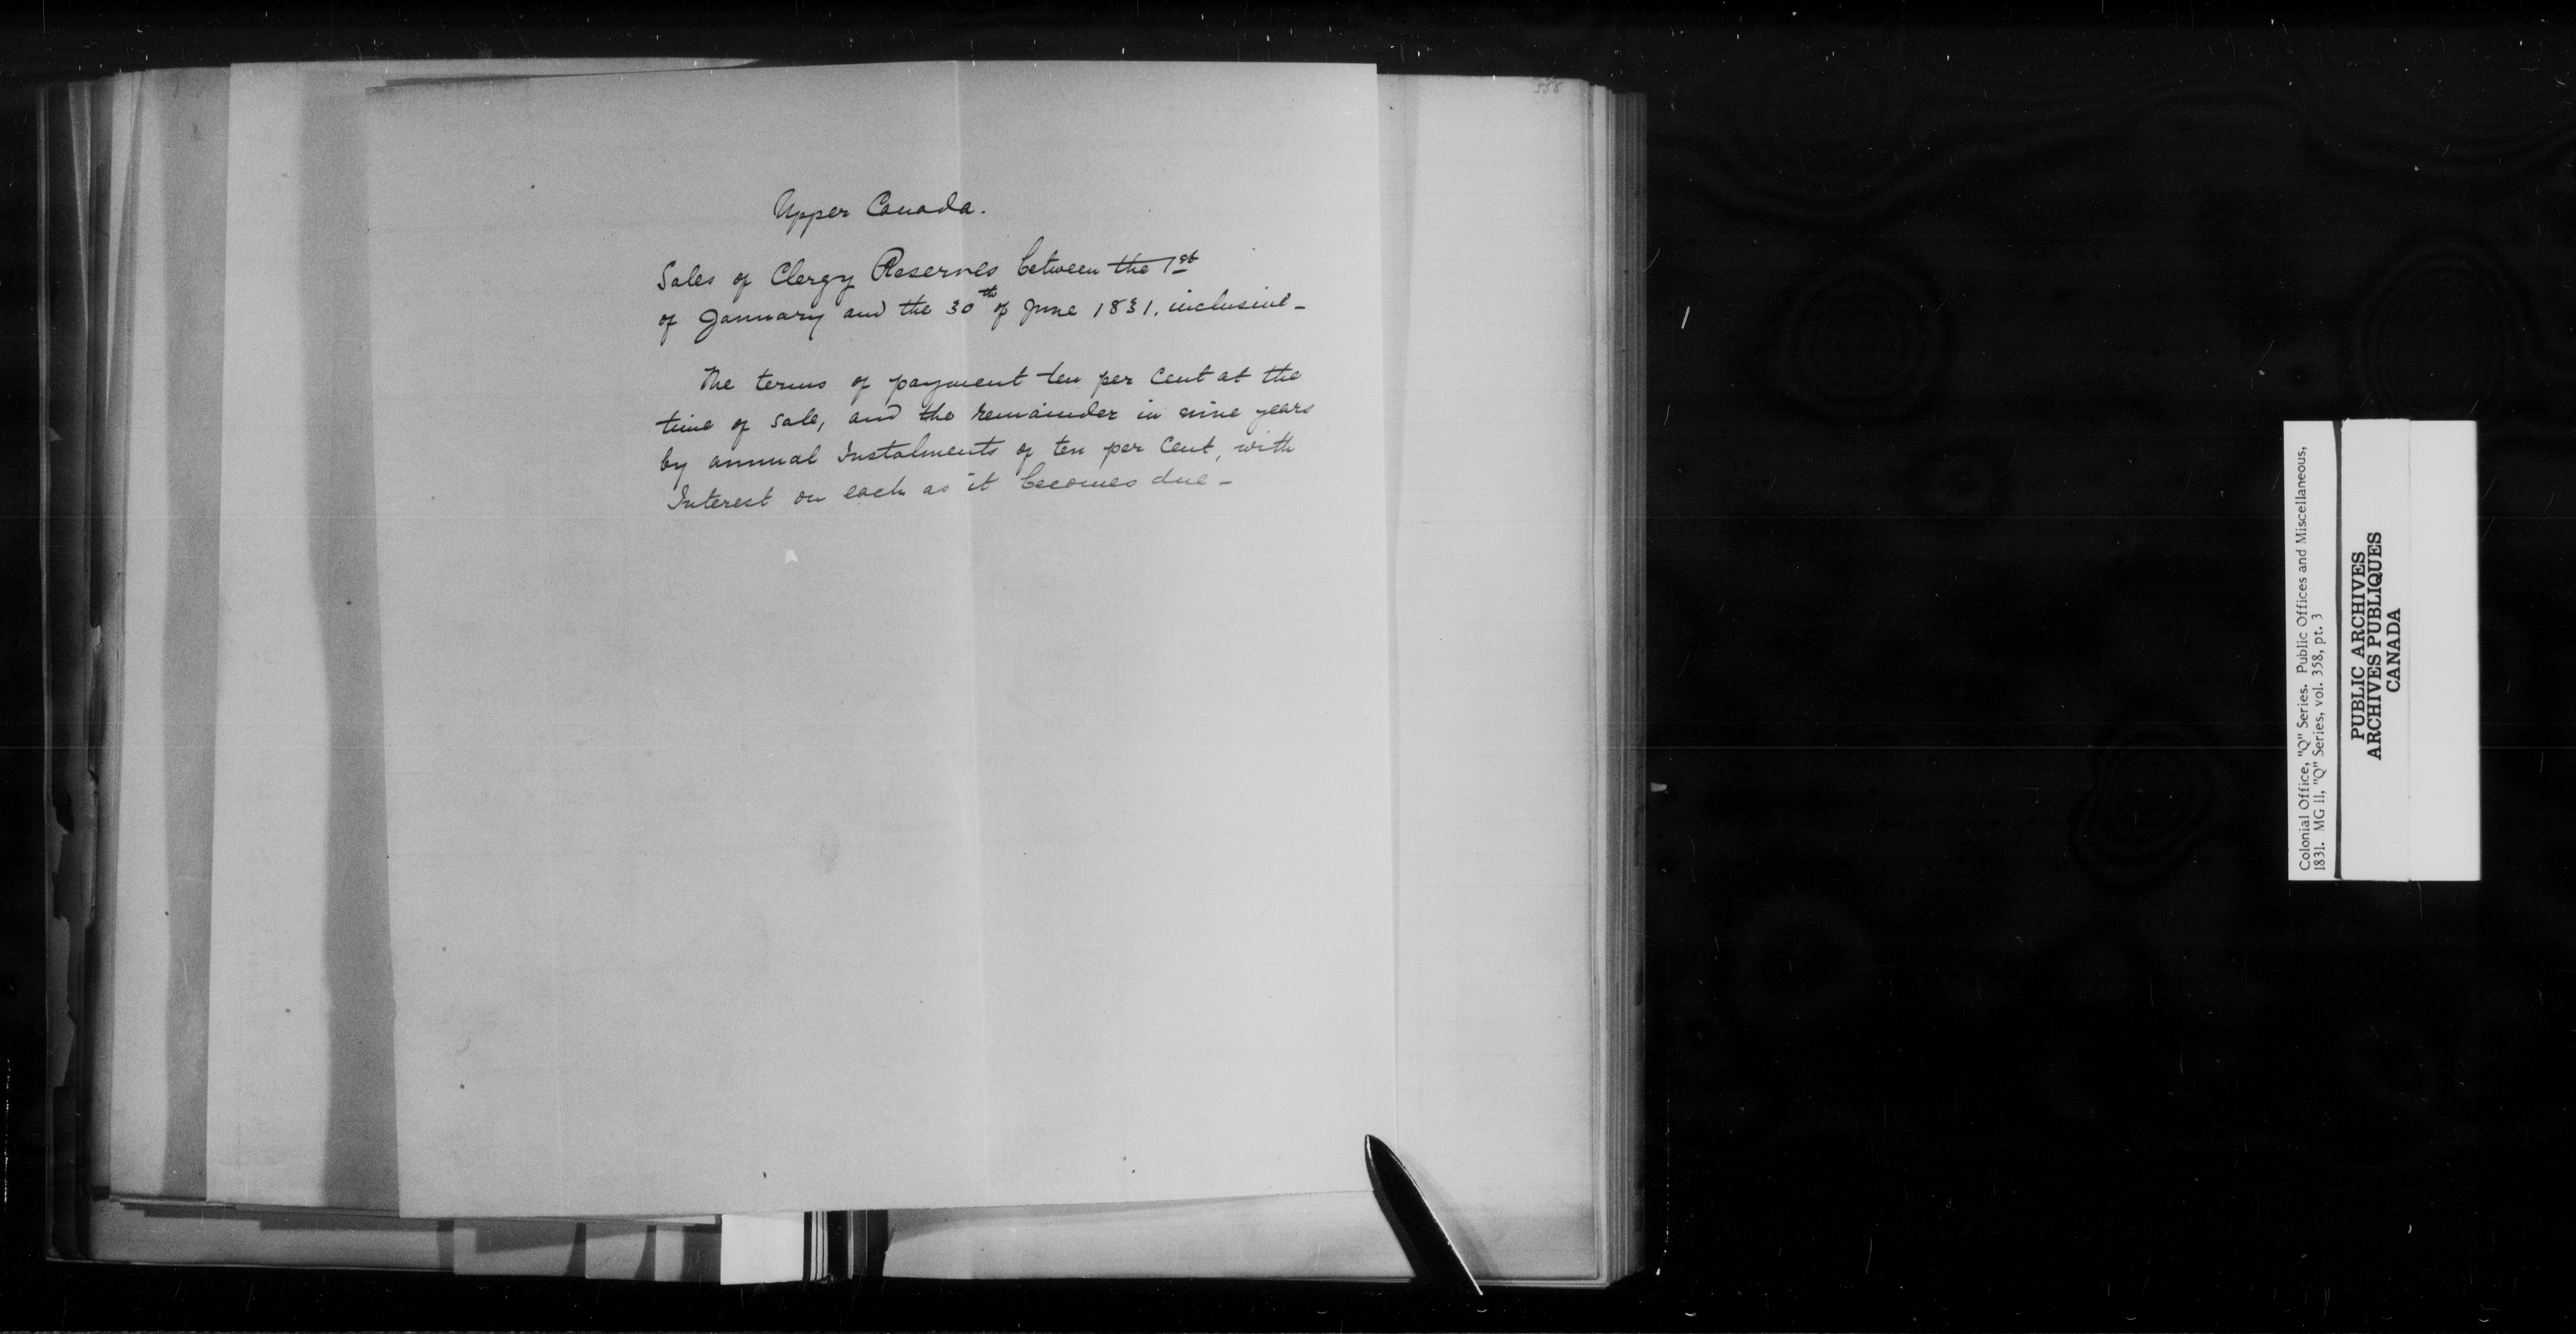 558
Upper Canada.
Sales of Clergy Reserves between the 1st
of January and the 30th of June 1831. inclusive -
The terms of payment ten per Cent at the
time of sale, and the remainder in nine years
by annual Instalments of ten per Cent, with
Interest on each as it becomes due -
Colonial Office, "Q" Series. Public Offices and Miscellaneous,
1831. MG 11, "Q" Series, vol. 358, pt. 3
PUBLIC ARCHIVES
ARCHIVES PUBLIQUES
CANADA